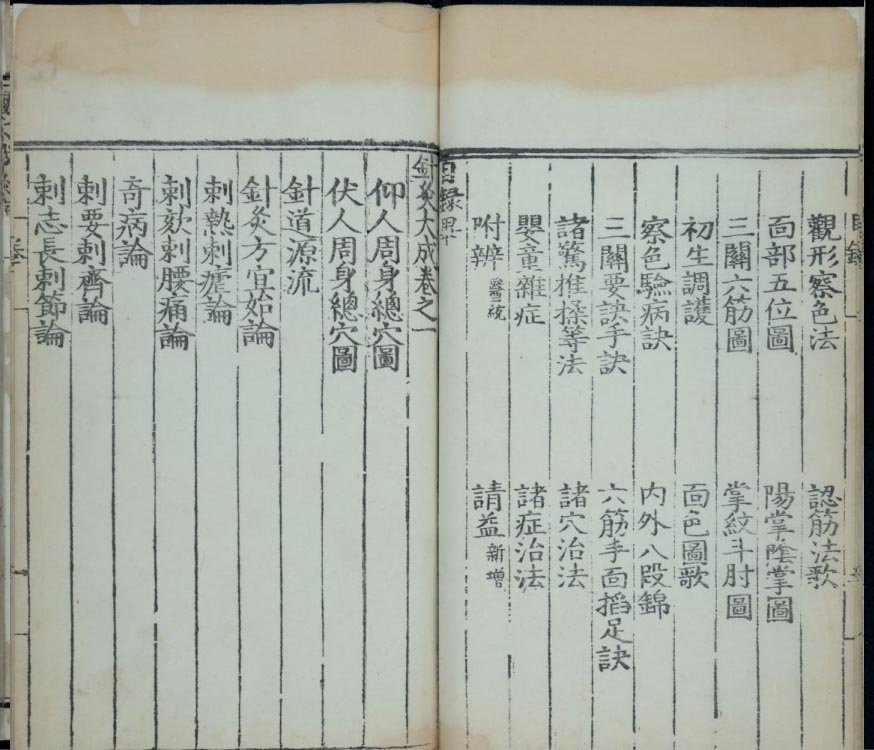 目錄
觀形察色法　認筋法歌
面部五位圖　陽掌陰掌圖
三關六筋圖　掌紋斗肘圖
初生調護　面色圖歌
察色驗病訣　内外八段錦
三關要訣手訣　六筋手面掐足訣
諸驚推揉等法　諸穴治法
嬰童雜症　諸症治法
附辨 醫統　請益 新增
目錄畢
針灸大成卷之一
仰人周身總穴圖
伏人周身總穴圖
針道源流
針灸方宜始論
刺熱刺瘧論
刺欬刺腰痛論
奇病論
刺要刺齊論
刺志長刺節論